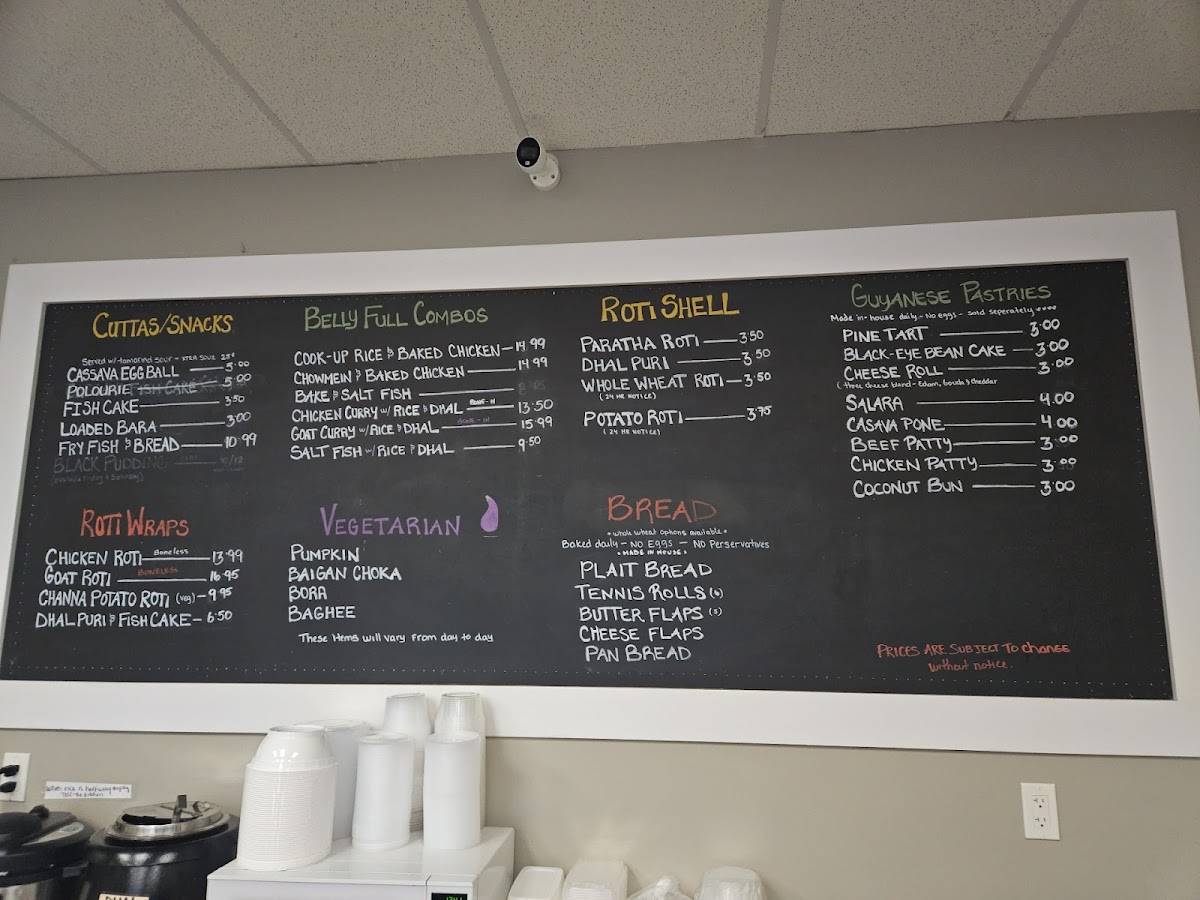 CUTTAS/SNACKS
Served w/ tamarind sour - XTRA SOUR 25¢
CASSAVA EGG BALL 5.00
POLOURIE FISH CAKE 5.00
FISH CAKE 3.50
LOADED BARA 3.00
FRY FISH & BREAD 10.99
BLACK PUDDING
(available Friday & Saturday)
ROTI WRAPS
CHICKEN ROTI Boneless 13.99
GOAT ROTI BONELESS 16.95
CHANNA POTATO ROTI (veg) 9.95
DHAL PURI & FISH CAKE 6.50
BELLY FULL COMBOS
COOK-UP RICE & BAKED CHICKEN 14.99
CHOWMEIN & BAKED CHICKEN 14.99
BAKE & SALT FISH
CHICKEN CURRY w/ RICE & DHAL BONE-IN 13.50
GOAT CURRY w/ RICE & DHAL BONE-IN 15.99
SALT FISH w/ RICE & DHAL 9.50
VEGETARIAN
PUMPKIN
BAIGAN CHOKA
BORA
BAGHEE
These items will vary from day to day
ROTI SHELL
PARATHA ROTI 3.50
DHAL PURI 3.50
WHOLE WHEAT ROTI 3.50
(24 HR NOTICE)
POTATO ROTI 3.75
(24 HR NOTICE)
BREAD
• whole wheat options available •
Baked daily - NO EGGS - NO PERSERVATIVES
• MADE IN HOUSE •
PLAIT BREAD
TENNIS ROLLS (6)
BUTTER FLAPS (5)
CHEESE FLAPS
PAN BREAD
GUYANESE PASTRIES
Made in-house daily - No eggs - sold seperately ****
PINE TART 3.00
BLACK-EYE BEAN CAKE 3.00
CHEESE ROLL 3.00
(three cheese bland - Edam, Gouda & Cheddar
SALARA 4.00
CASAVA PONE 4.00
BEEF PATTY 3.00
CHICKEN PATTY 3.00
COCONUT BUN 3.00
PRICES ARE SUBJECT TO change
without notice.